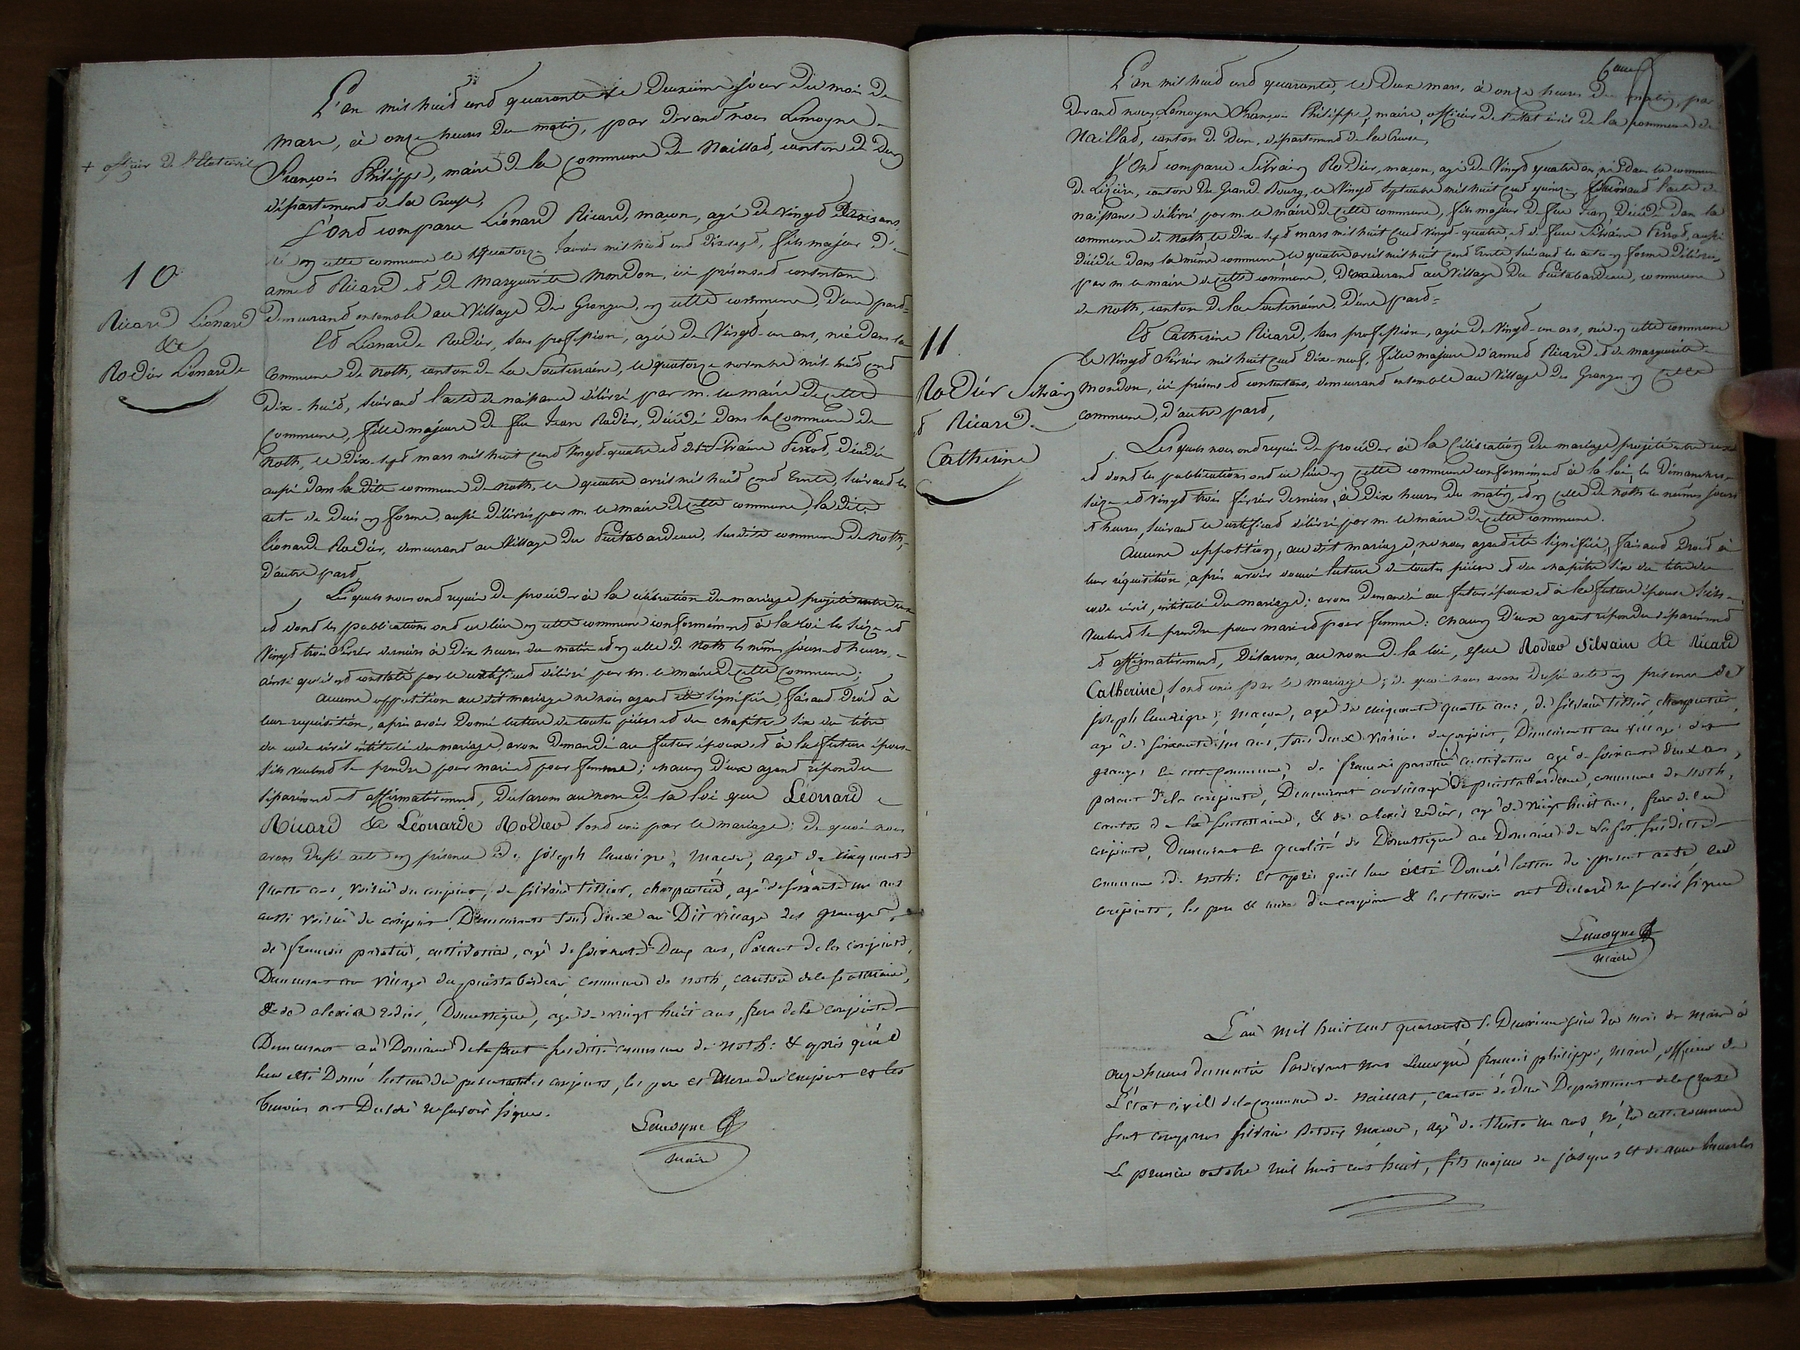 L'an mil huit cent quarante le Deuxième jour du mois de
mars, à onze heures du matin, par devant nous Lemoyne
François Philippe, maire de la commune de Naillad, canton de dun
+ officier de l'état civil
département de la Creuse,
Sont comparu Léonard Ricard, maçon, agé de vingt trois ans,
né en cette commune le quatorze janvier mil huit cent dix sept, fils majeur d'
anned Ricard et de marguerite mondon, ici présents et consentans
demeurand ensemble au Village des Granges, en cette commune, d'une pard=
10
Ricard Léonard
&
Rodier Léonarde
Et Léonarde Rodier, sans profession, agée de Vingt-un ans, née dans la
commune de Noth, canton de La Souterraine, le quatorze novembre mil huit cent
dix-huit, suivand l'acte de naissance délivré par m. le maire de cette
commune, fille majeure de feu Jean Rodier, décédé dans la commune de
Noth, le dix-sept mars mil huit cent vingt-quatre et de Silvaine Perrod, décédée
aussi dans la dite commune de noth, le quatre avril mil huit cent trente, suivand les
actes de décès en forme, aussi délivrés par m. le maire de cette commune, la dite
Léonarde Rodier, demeurand au Village du Puitabardeau, susdite commune de Noth,
d'autre pard,
Lesquels nous ont requis de procéder à la célébration du mariage projeté entre eux
et dont les publications ont eu lieu en cette commune conformément à la loi les seize et
vingt trois février derniers à dix heures du matin et en celle de Noth les mêmes jours et heures,
ainsi qu'il est constaté par le certificat délivré par m. le maire de cette commune;
Aucune opposition au dit mariage ne nous ayand été signifiée, faisand droit à
leur requisition, après avoir donné lecture de toutes pièces et du chapitre six du titre
du code civil intitulé du mariage, avons demandé au futur époux et à la future épouse
s'ils veulent se prendre pour mari et pour femme; chacun d'eux ayand répondu
séparément et affirmativement, déclarons au nom de la loi que Léonard
Ricard & Léonarde Rodier sont unis par le mariage; de quoi nous
avons dressé acte en présence de joseph Lavergne, maçon, agé de cinquante
quatre ans, voisin du conjoint, de silvain tillier, charpentier, agé de soixante un ans
aussi voisin du conjoint Demeurants tous deux au Dit village des granges,
de françois parotin, cultivateur, agé de soixante Deux ans, Parent de la conjointe,
Demeurant au village du puitabardeau, commune de noth, canton de la souterraine,
& de alexis rodier, Domestique, agé de vingt huit ans, frere de la conjointe
Demeurant au Domaine de la fot susdite commune de noth: & après qu'il
leur été Donné lecture du présent acte les conjoints, les pere et mere du conjoint et les
temoins ont Déclaré ne savoir signer.
Lemoyne
maire
6eme
L'an mil huit cent quarante, le deux mars, à onze heures du matin, par
devand nous Lemoyne François Philippe, maire, officier de l'état civil de la commune de
Naillad, canton de Dun, département de la Creuse,
Sont comparu Silvain Rodier, maçon, agé de Vingt quatre ans, né dans la commune
de Lizière, canton du Grand Bourg, le vingt septembre mil huit cent quinze, suivand l'acte de
naissance délivré par m. le maire de cette commune, fils majeur de feu Jean, décédé dans la
commune de Noth le dix-sept mars mil huit cent vingt-quatre, et de feue Silvaine Perrod, aussi
décédée dans la même commune le quatre avril mil huit cent trente suivand les actes en forme délivrés
par m. le maire de cette commune, demeurand au Village du Puitabardeau, commune
de Noth, canton de la Souterraine, d'une pard=
11
Rodier Silvain
et Ricard
Catherine
Et Catherine Ricard, sans profession, agée de vingt-un ans, née en cette commune
le vingt février mil huit cent dix-neuf, fille majeure d'anned Ricard et de marguerite
mondon, ici présens et contentans, demeurand ensemble au Village des Granges en cette
commune, d'autre pard,
Lesquels nous ont requis de procéder à la célébration du mariage projeté entre eux
et dont les publications ont eu lieu en cette commune conformément à la loi, les Dimanches
seize et vingt trois février derniers, à dix heures du matin, et en celle de Noth les mêmes jours
& heures, suivand le certificat délivré par m. le maire de cette commune.
Aucune opposition, au dit mariage, ne nous ayand été signifiée, faisand droit à
leur réquisition, après avoir donné lecture de toutes pièces et du chapitre six du titre du
code civil, intitulé du mariage; avons demandé au futur époux et à la future épouse s'ils
veulent se prendre pour mari et pour femme: chacun d'eux ayant répondu séparément
et affirmativement, Déclarons, au nom de la loi, que Rodier Silvain & Ricard
Catherine, sont unis par le mariage; de quoi nous avons dressé acte en présence de
joseph Lavergne, maçon, agé de cinquante quatre ans, de silvain tillier, charpentier,
agé de soixante un ans, tous deux voisins du conjoint, Demeurants au village des
granges en cette commune, de françois parotin cultivateur agé de soixante deux ans,
parent de la conjointe, Demeurant au village du puitabardeau, commune de noth,
canton de la souterraine, & de alexis rodier, agé de vingt huit ans, frere de la
conjointe, Demeurant en qualité de Domestique au Domaine de la fot susdite
commune de noth: Et après qu'il leur été Donné lecture du présent acte les
conjoints, les pere & mere du conjoint & les temoins ont Déclaré ne savoir signer
Lemoyne
maire
L'an mil huit cent quarante le Deuxieme jour du mois de mars à
onze heures du matin Pardevant nous Lemoyne françois philippe, maire, officier de
L'état civil de la commune de Naillat, canton de dun Département de la Creuse
sont comparus silvain maçon, agé de trente un ans, né en cette commune
Le premier octobre mil huit cent huit, fils majeur de jacques et de anne